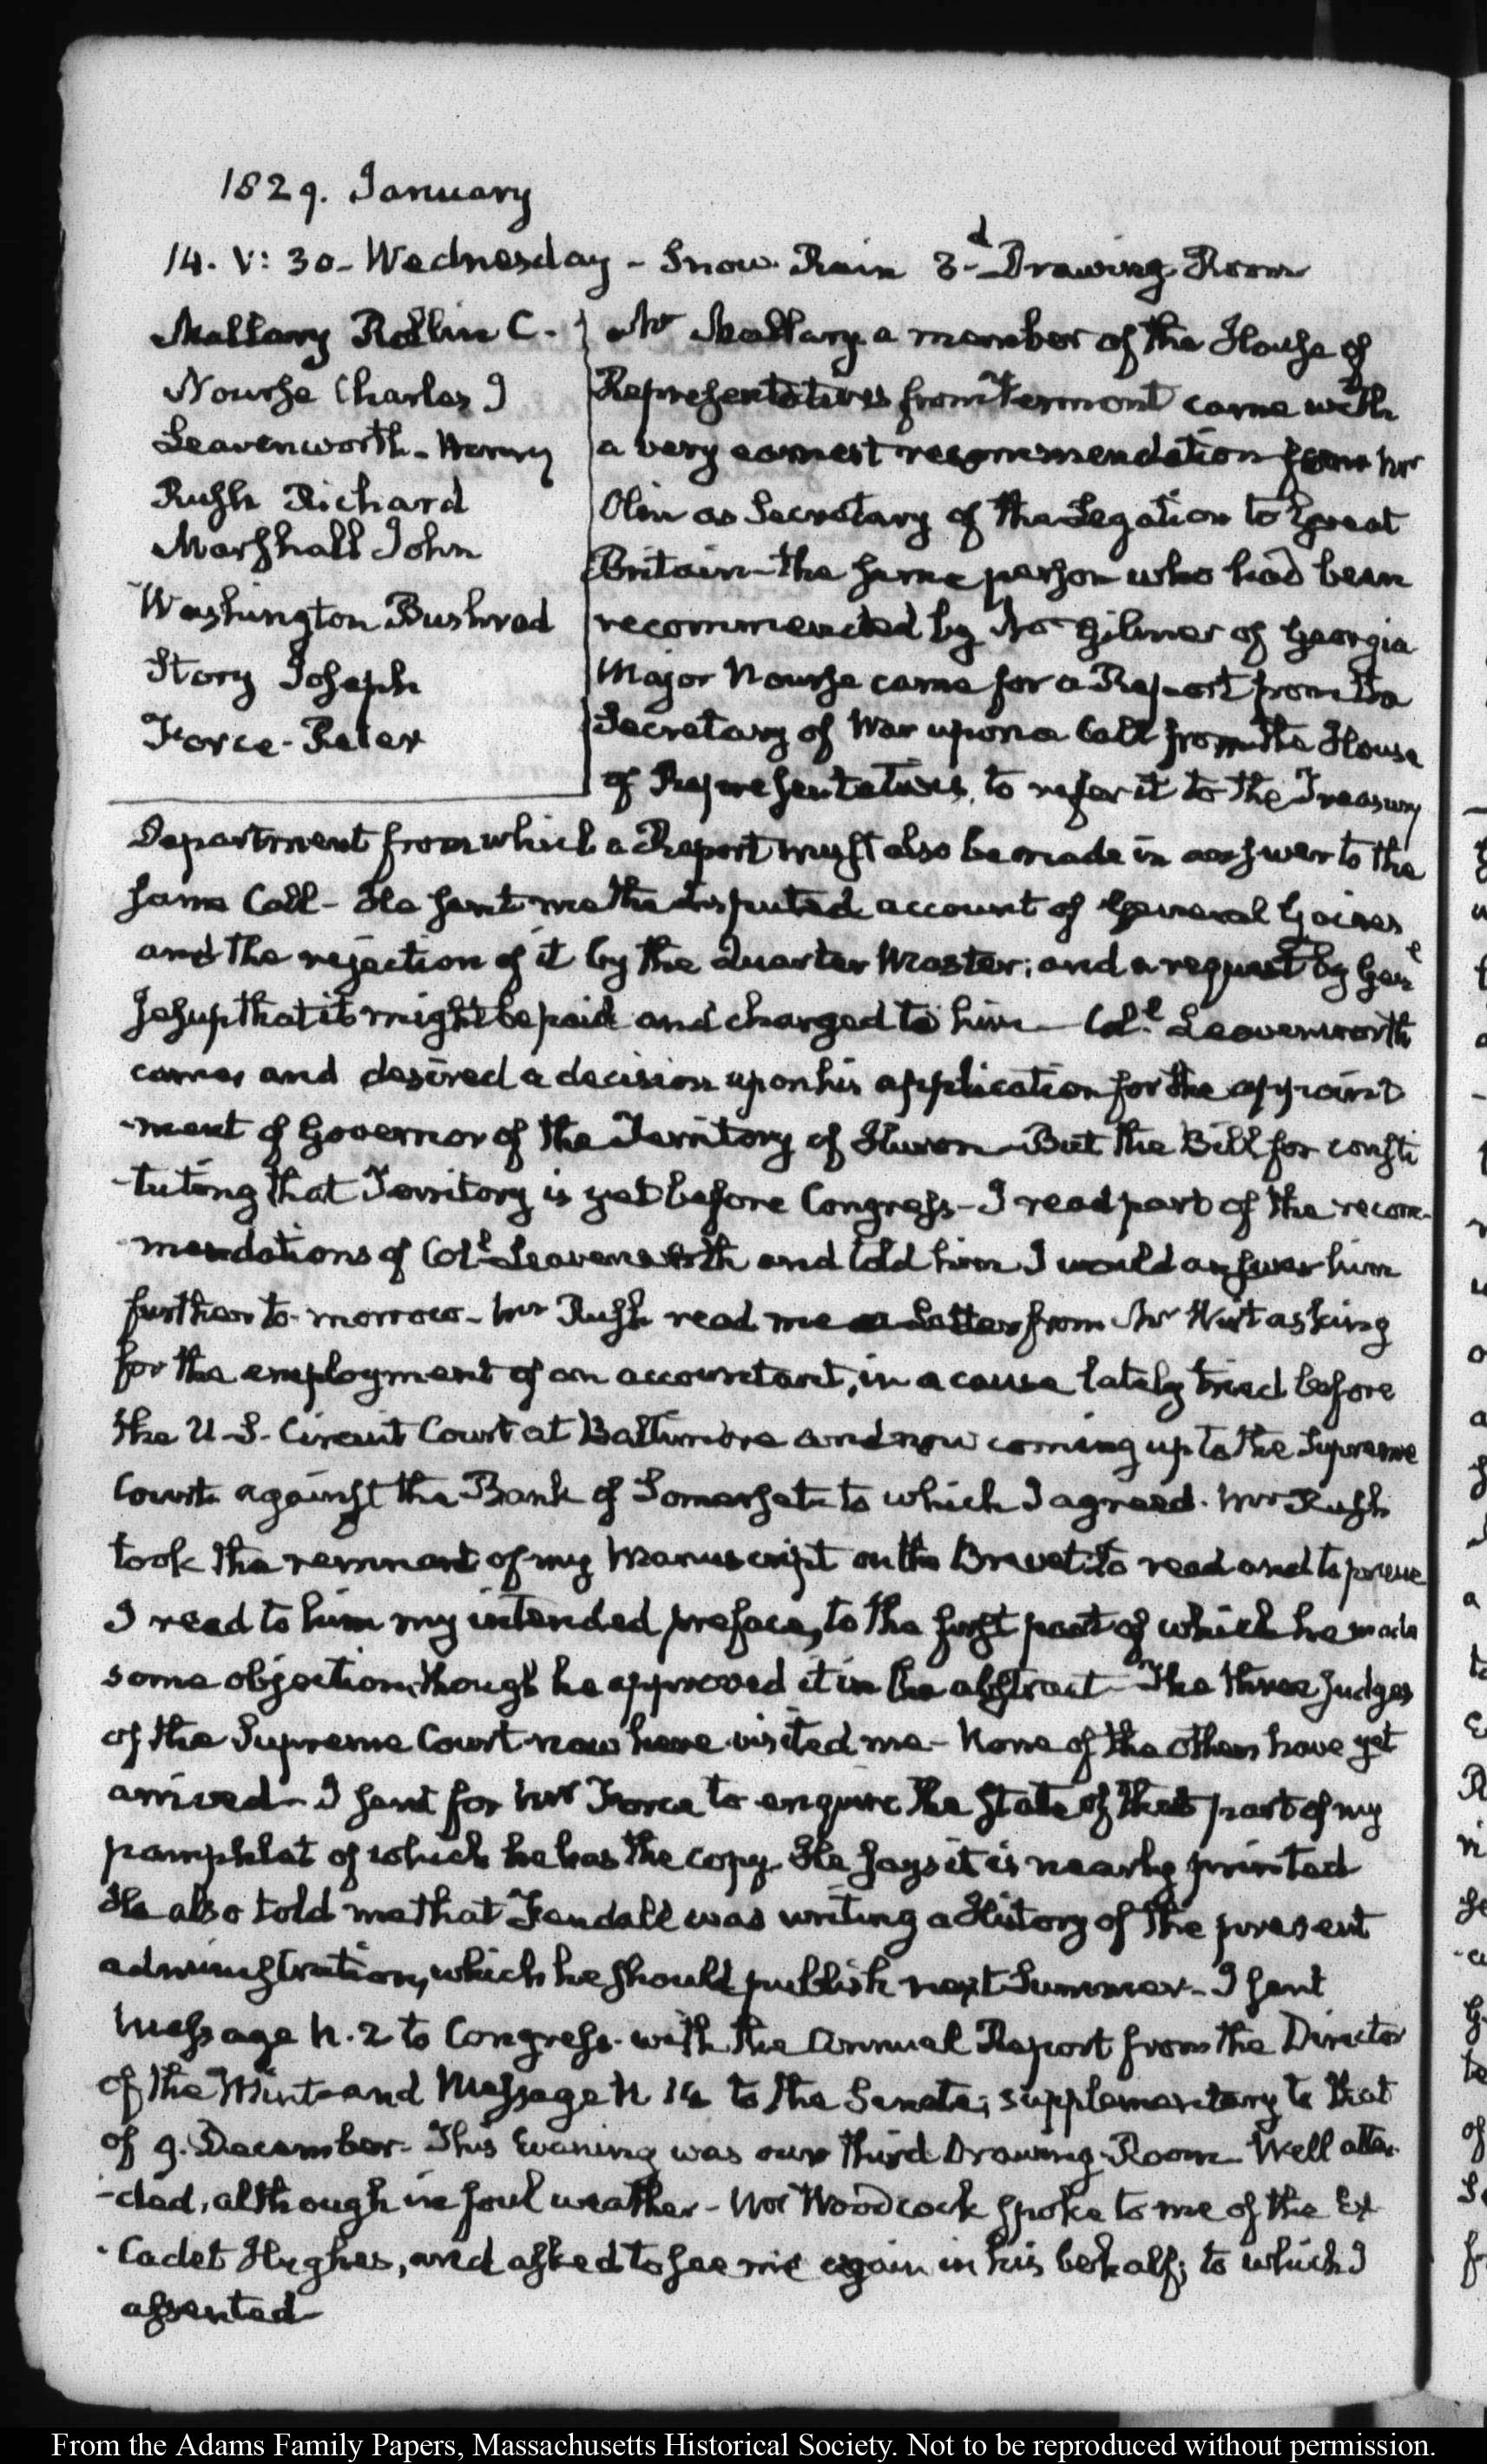 1829. January
14. V: 30 - Wednesday - Snow. Rain 3d Drawing Room
Mallary Rollin C.
Nourse Charles J
Leavenworth - Henry
Rush Richard
Marshall John
Washington Bushrod
Story Joseph
Force - Peter
Mr Mallary a member of the House of
Representatives from Vermont came with
a very earnest recommendation from Mr
Olin as Secretary of the Legation to Great
Britain - the same person who had been
recommended by Mr Gilmer of Georgia
Major Nourse came for a Report from the
Secretary of War upon a Call from the House
of Representatives, to refer it to the Treasury
Department from which a Report must also be made in answer to the
same Call - He sent me the disputed account of General Gaines
and the rejection of it by the Quarter Master; and a request by Genl
Jesup that it might be paid and charged to him - Coll Leavenworth
came, and desired a decision upon his application for the appoint
-ment of Governor of the Territory of Huron - But the Bill for consti
-tuting that Territory is yet before Congress - I read part of the recom-
-mendations of Coll Leavenworth and told him I would answer him
further to-morrow - Mr Rush read me a Letter from Mr Wirt asking
for the employment of an accountant, in a cause lately tried before
the U.S. Circuit Court at Baltimore and now coming up to the Supreme
Court against the Bank of Somerset to which I agreed. Mr Rush
took the remnant of my Manuscript on the Brevets to read and to
I read to him my intended preface, to the first part of which he made
some objection, though he approved it in the abstract - The three Judges
of the Supreme Court now here visited me - None of the others have yet
arrived - I sent for Mr Force to enquire the state of that part of my
pamphlet of which he has the copy. He says it is nearly printed
He also told me that Kendall was writing a History of the present
administration, which he should publish next Summer - I sent
Message N. 2 to Congress with the annual Report from the Director
of the Mint - and Message N 14 to the Senate; supplementary to that
of 9. December - This Evening was our third Drawing Room - Well atten
-ded, although in foul weather - Mr Woodcock spoke to me of the Ex
-Cadet Hughes, and asked to see me again in his behalf; to which I
assented
From the Adams Family Papers, Massachusetts Historical Society. Not to be reproduced without permission.